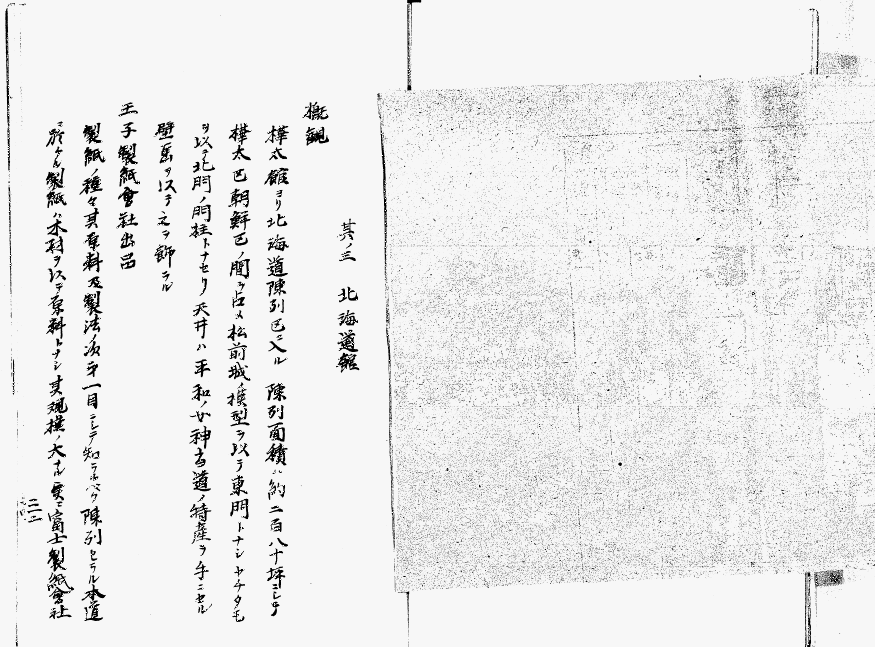 其ノ三 北海道館
概観
樺太館ヨリ北海道陳列区ニ入ル 陳列面積ハ約二百八十坪ニシテ
樺太区朝鮮区ノ間ヲ占メ松前城ノ模型ヲ以テ東門トナシヤチダモ
ヲ以テ北門ノ門柱トナセリ天井ハ平和ノ女神古道ノ特産ヲ手ニセル
壁画ヲ以テ之ヲ飾ラル
王子製紙會社出品
製紙ノ種々其原料及製法ノ次第一目ニシテ知ラルベク陳列セラル本道
ニ於ケル製紙ハ木材ヲ以テ原料トナシ其規模ノ大ナル実ニ富士製紙會社